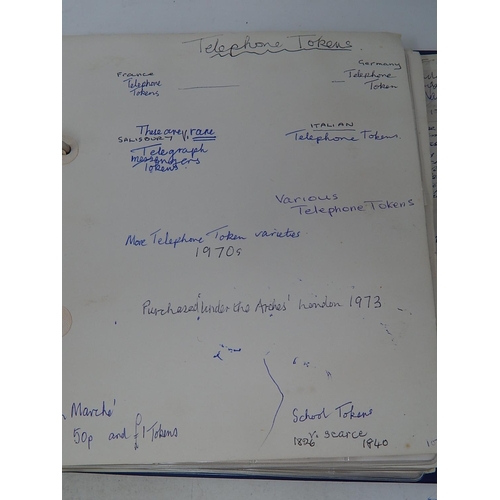 Telephone Tokens
France
Telephone
Tokens
Germany
Telephone
Token
These are v. rare
SALISBURY
Telegraph
messengers
Tokens
ITALIAN
Telephone Tokens.
Various
Telephone Tokens
More Telephone Token varieties
1970s
Purchased 'under the Arches' London 1973
Marché'
50p and £1 Tokens
School Tokens
v. scarce
1840